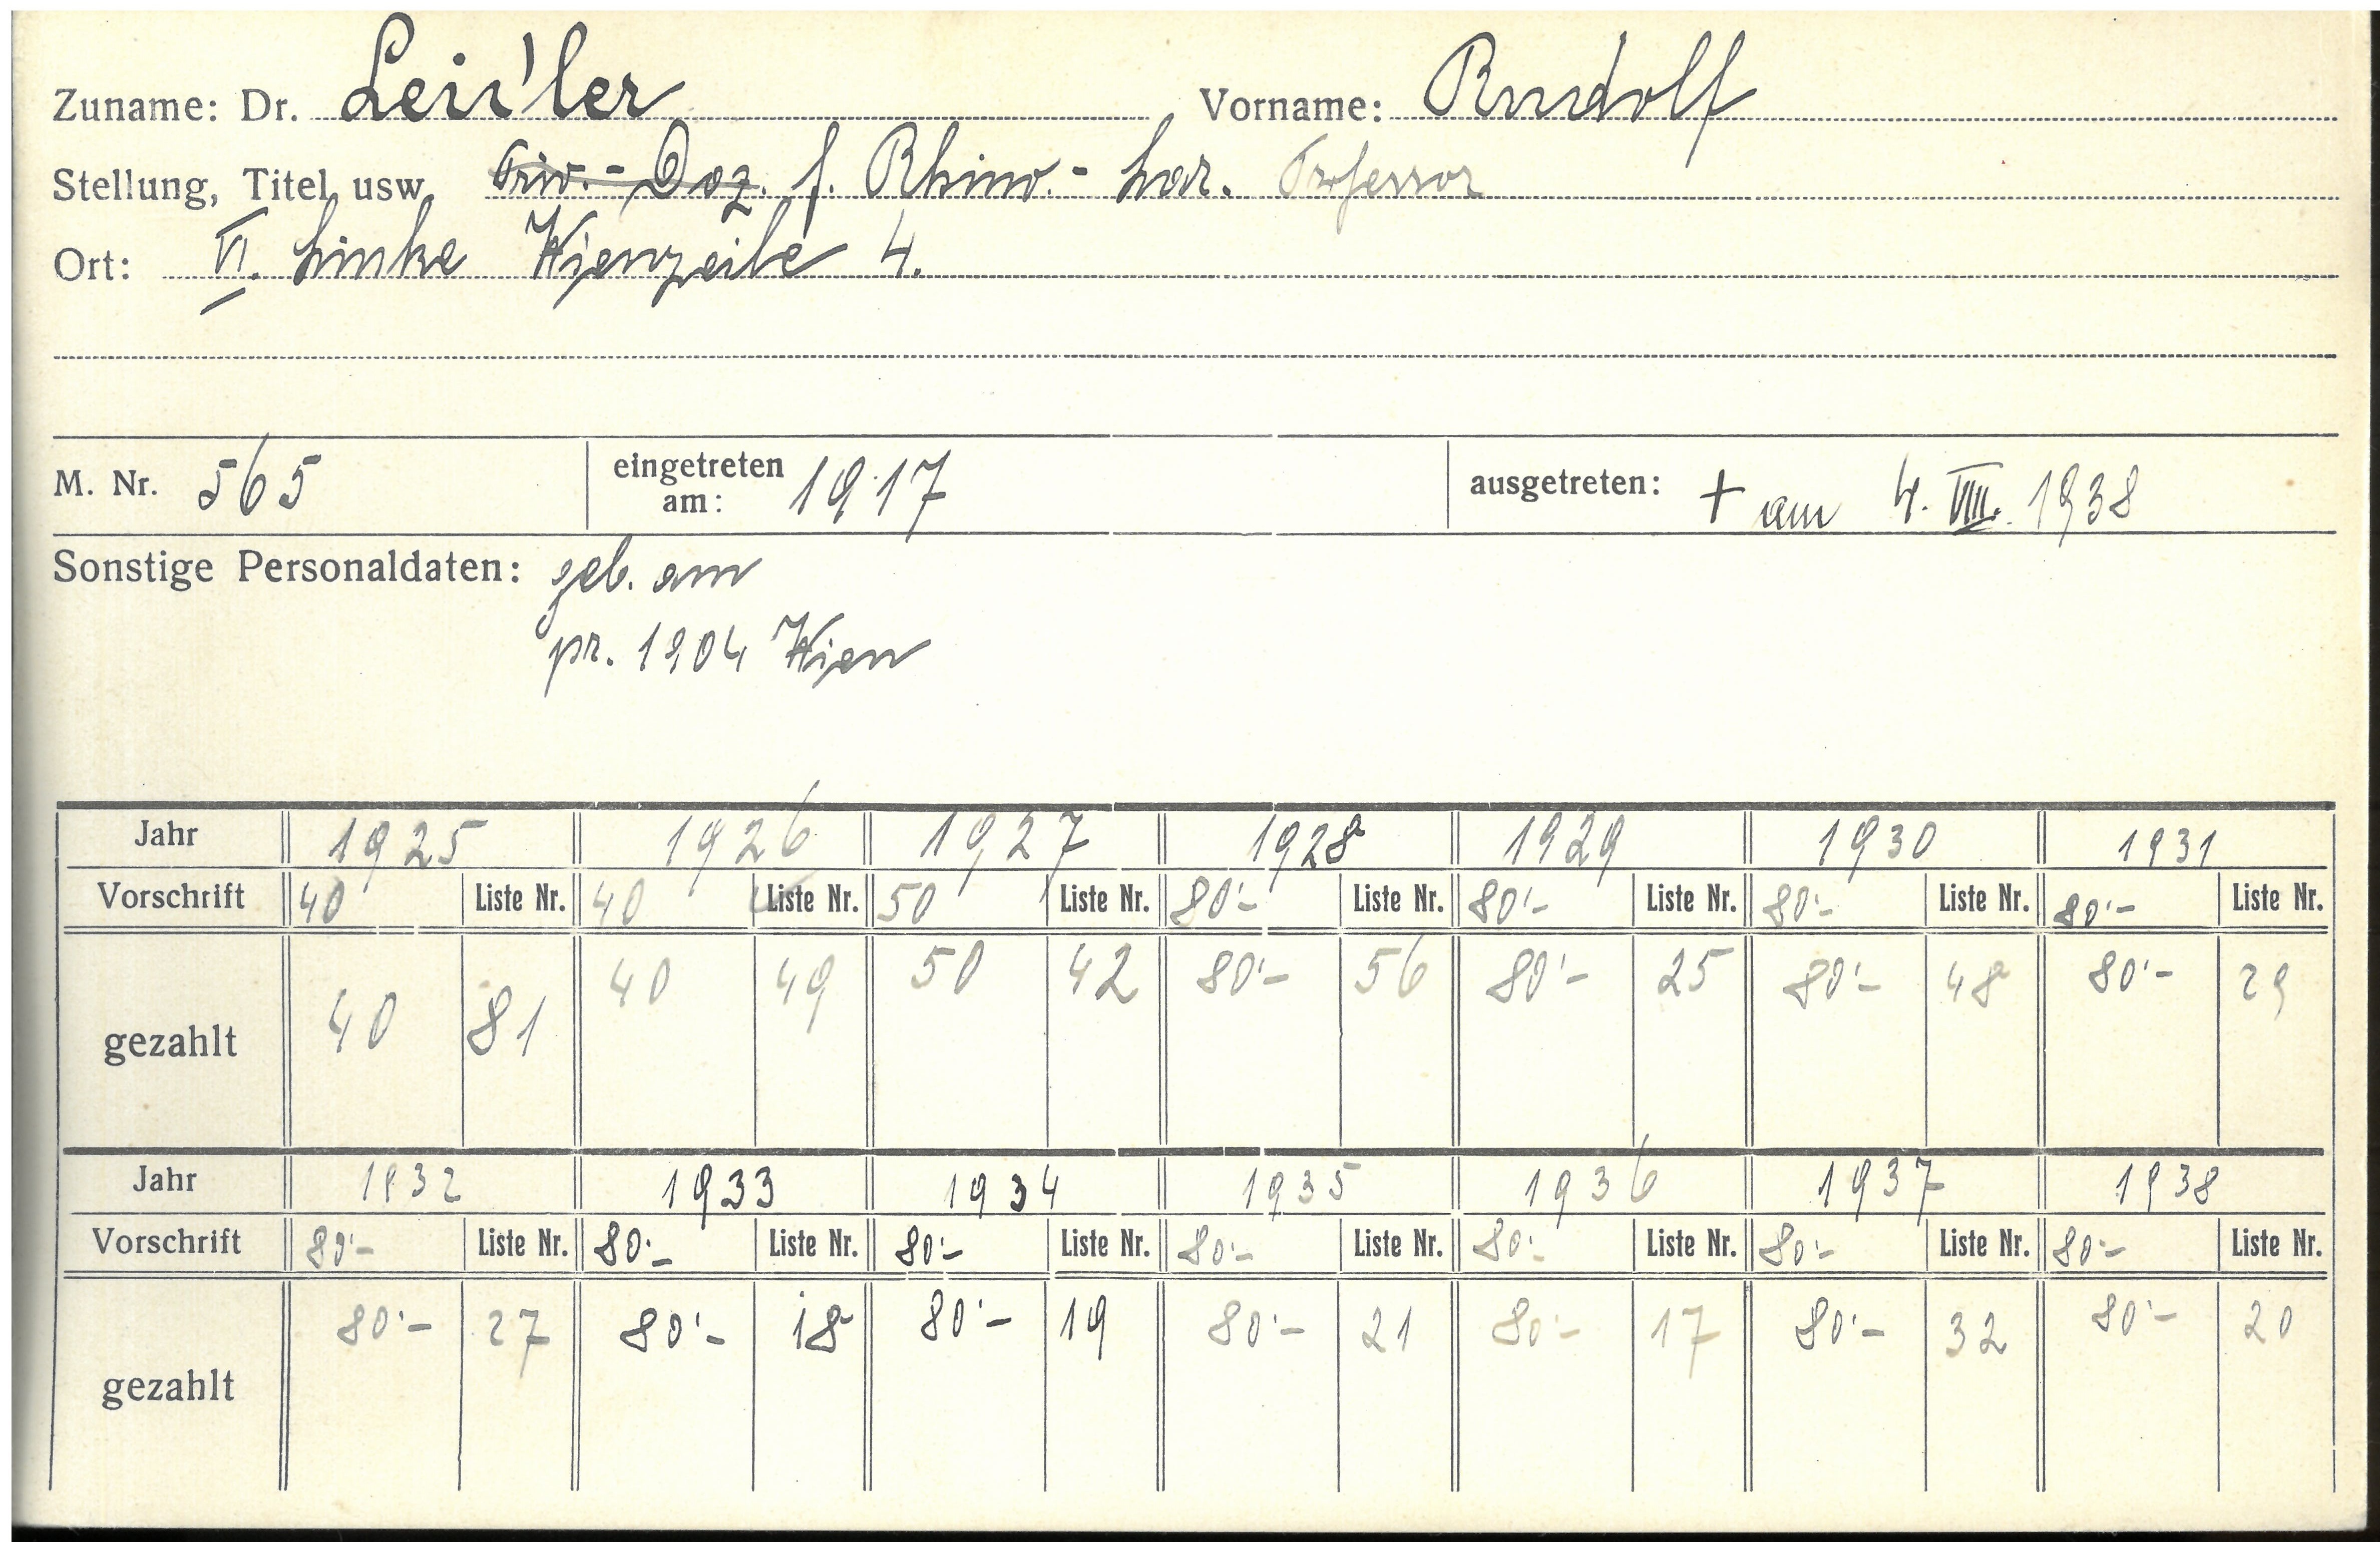 Zuname: Dr. Leidler Vorname: Rudolf
Stellung, Titel usw. Priv.-Doz. f. Rhino.-Lar. Professor
Ort: VI. Linke Wienzeile 4.
M. Nr. 565 eingetreten am: 1917 ausgetreten: + am 4. VIII. 1938
Sonstige Personaldaten: geb. am
pr. 1904 Wien
Jahr 1925 1926 1927 1928 1929 1930 1931
Vorschrift 40 Liste Nr. 40 Liste Nr. 50 Liste Nr. 80'- Liste Nr. 80'- Liste Nr. 80'- Liste Nr. 80'- Liste Nr.
gezahlt 40 81 40 49 50 42 80'- 56 80'- 25 80'- 48 80'- 29
Jahr 1932 1933 1934 1935 1936 1937 1938
Vorschrift 80'- Liste Nr. 80'- Liste Nr. 80'- Liste Nr. 80'- Liste Nr. 80'- Liste Nr. 80'- Liste Nr. 80'- Liste Nr.
gezahlt 80'- 27 80'- 18 80'- 19 80'- 21 80'- 17 80'- 32 80'- 20